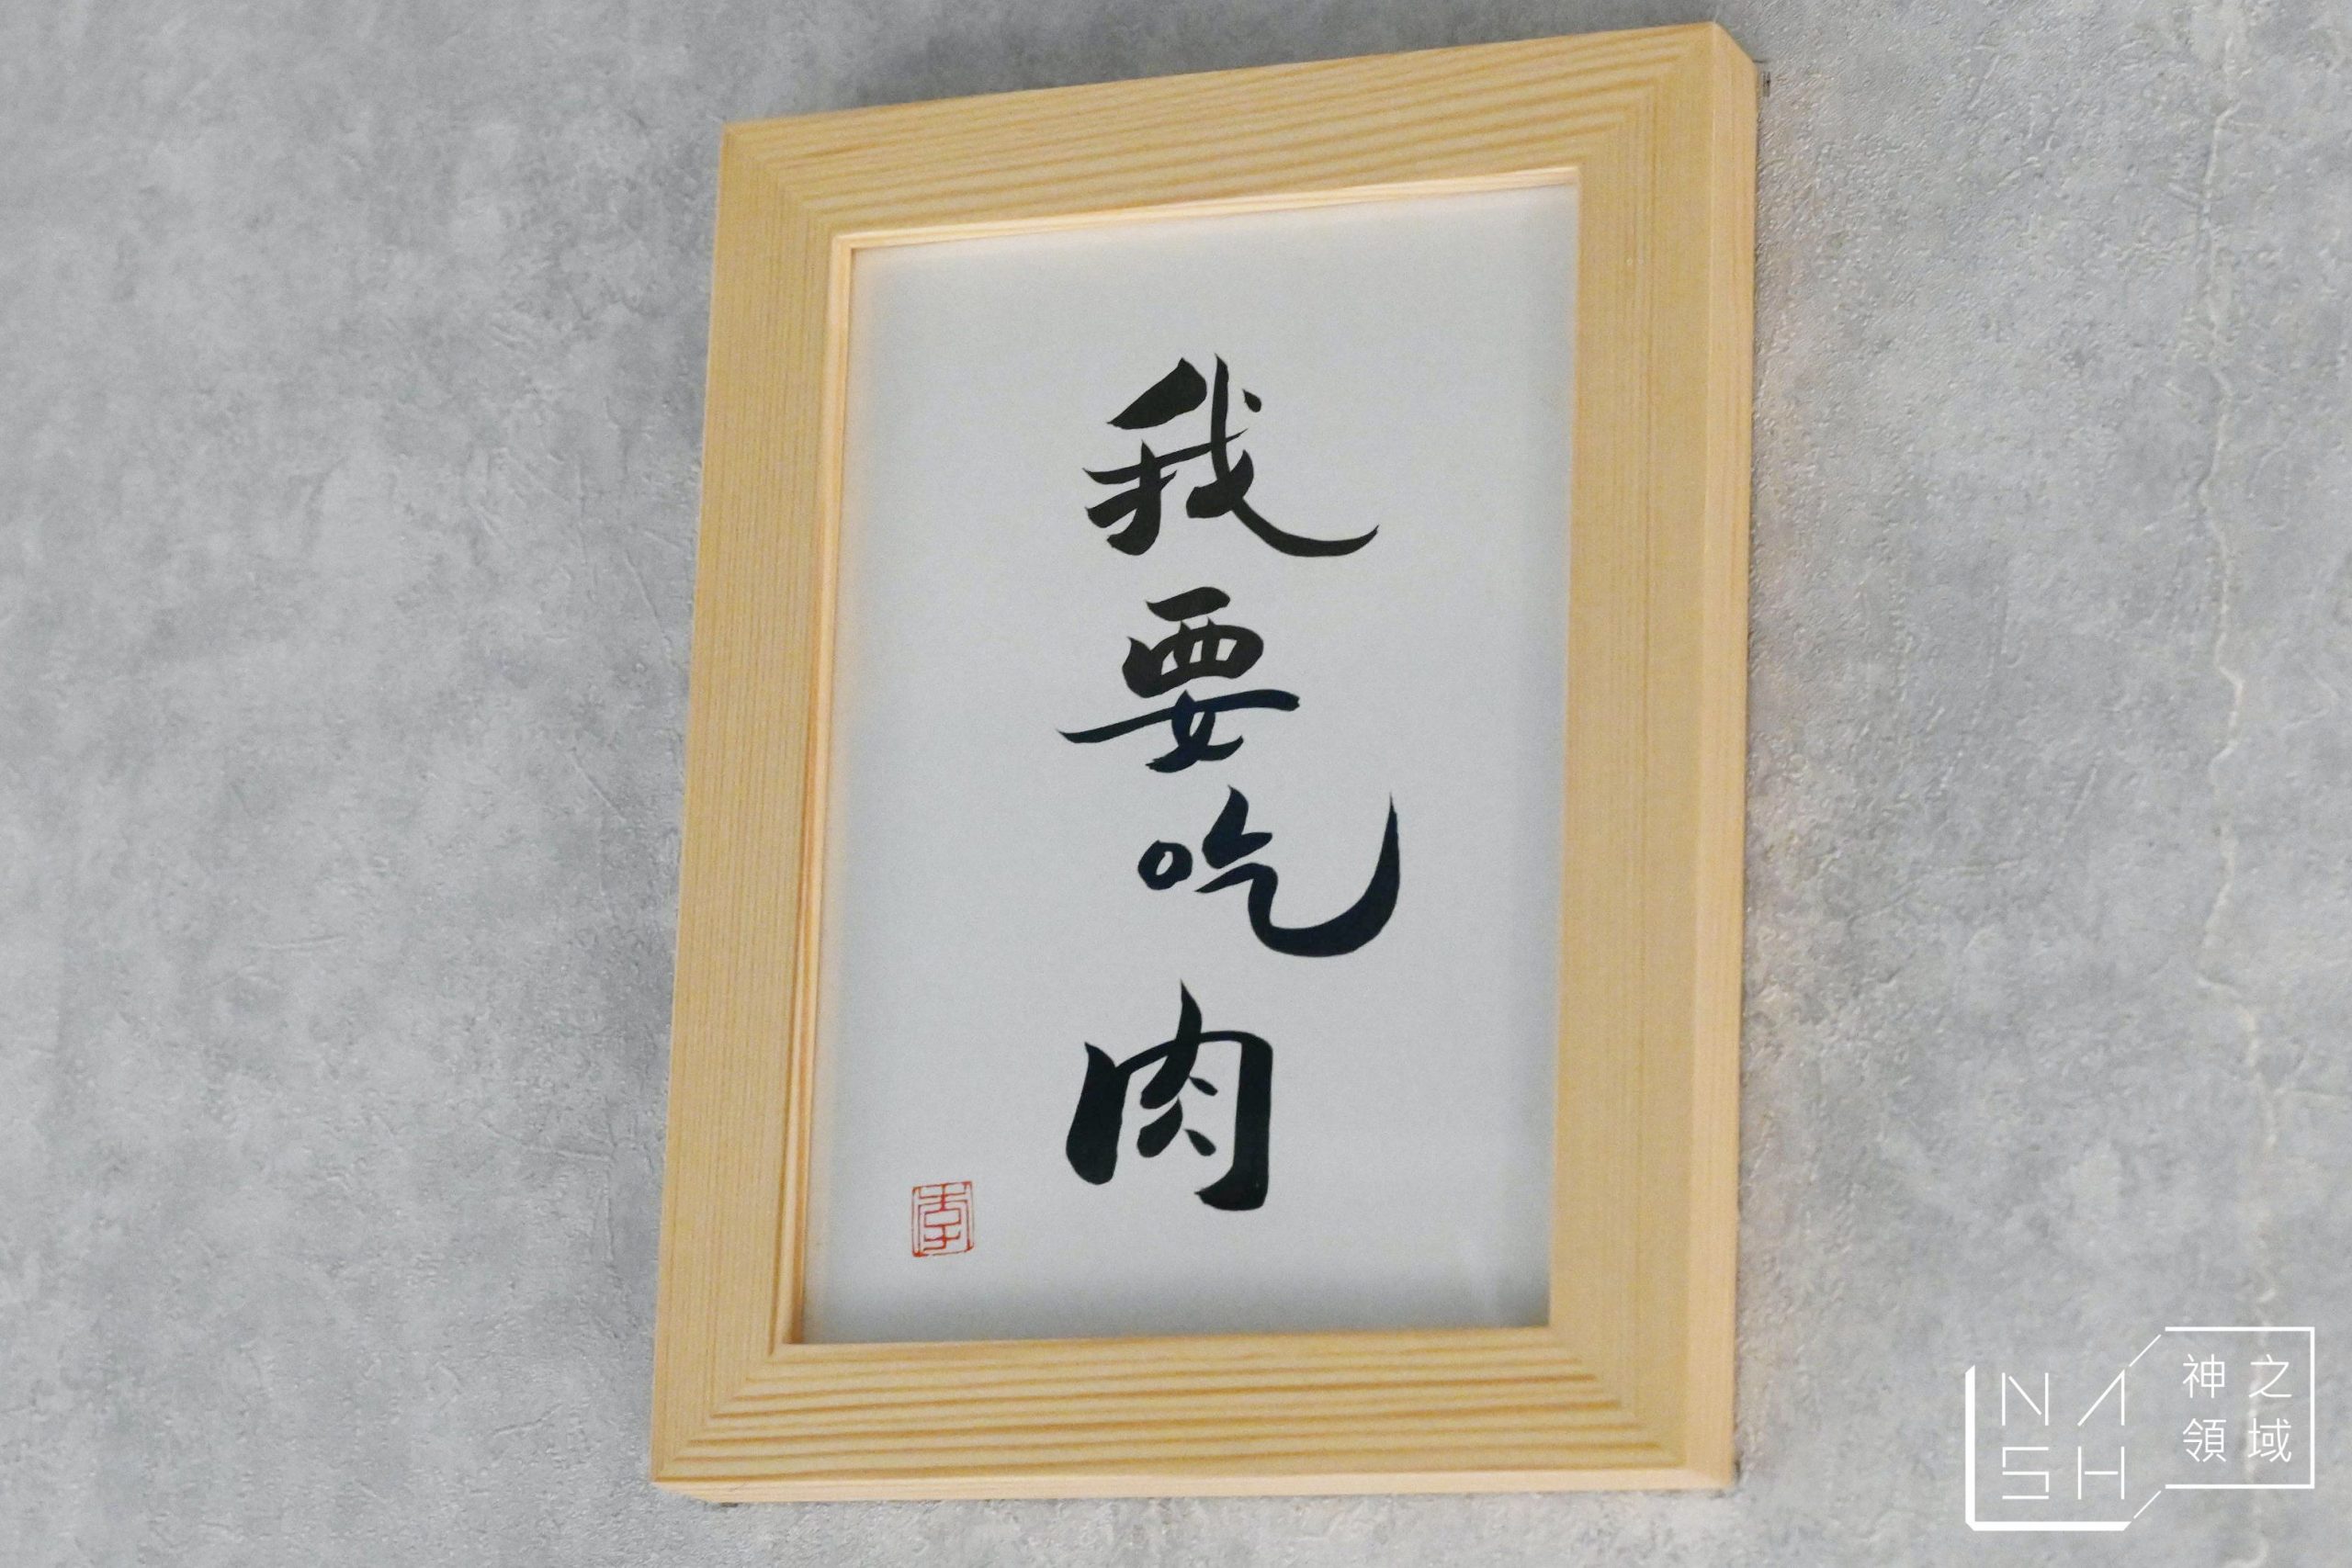 我要吃肉
李
NA
SH
神之
領域